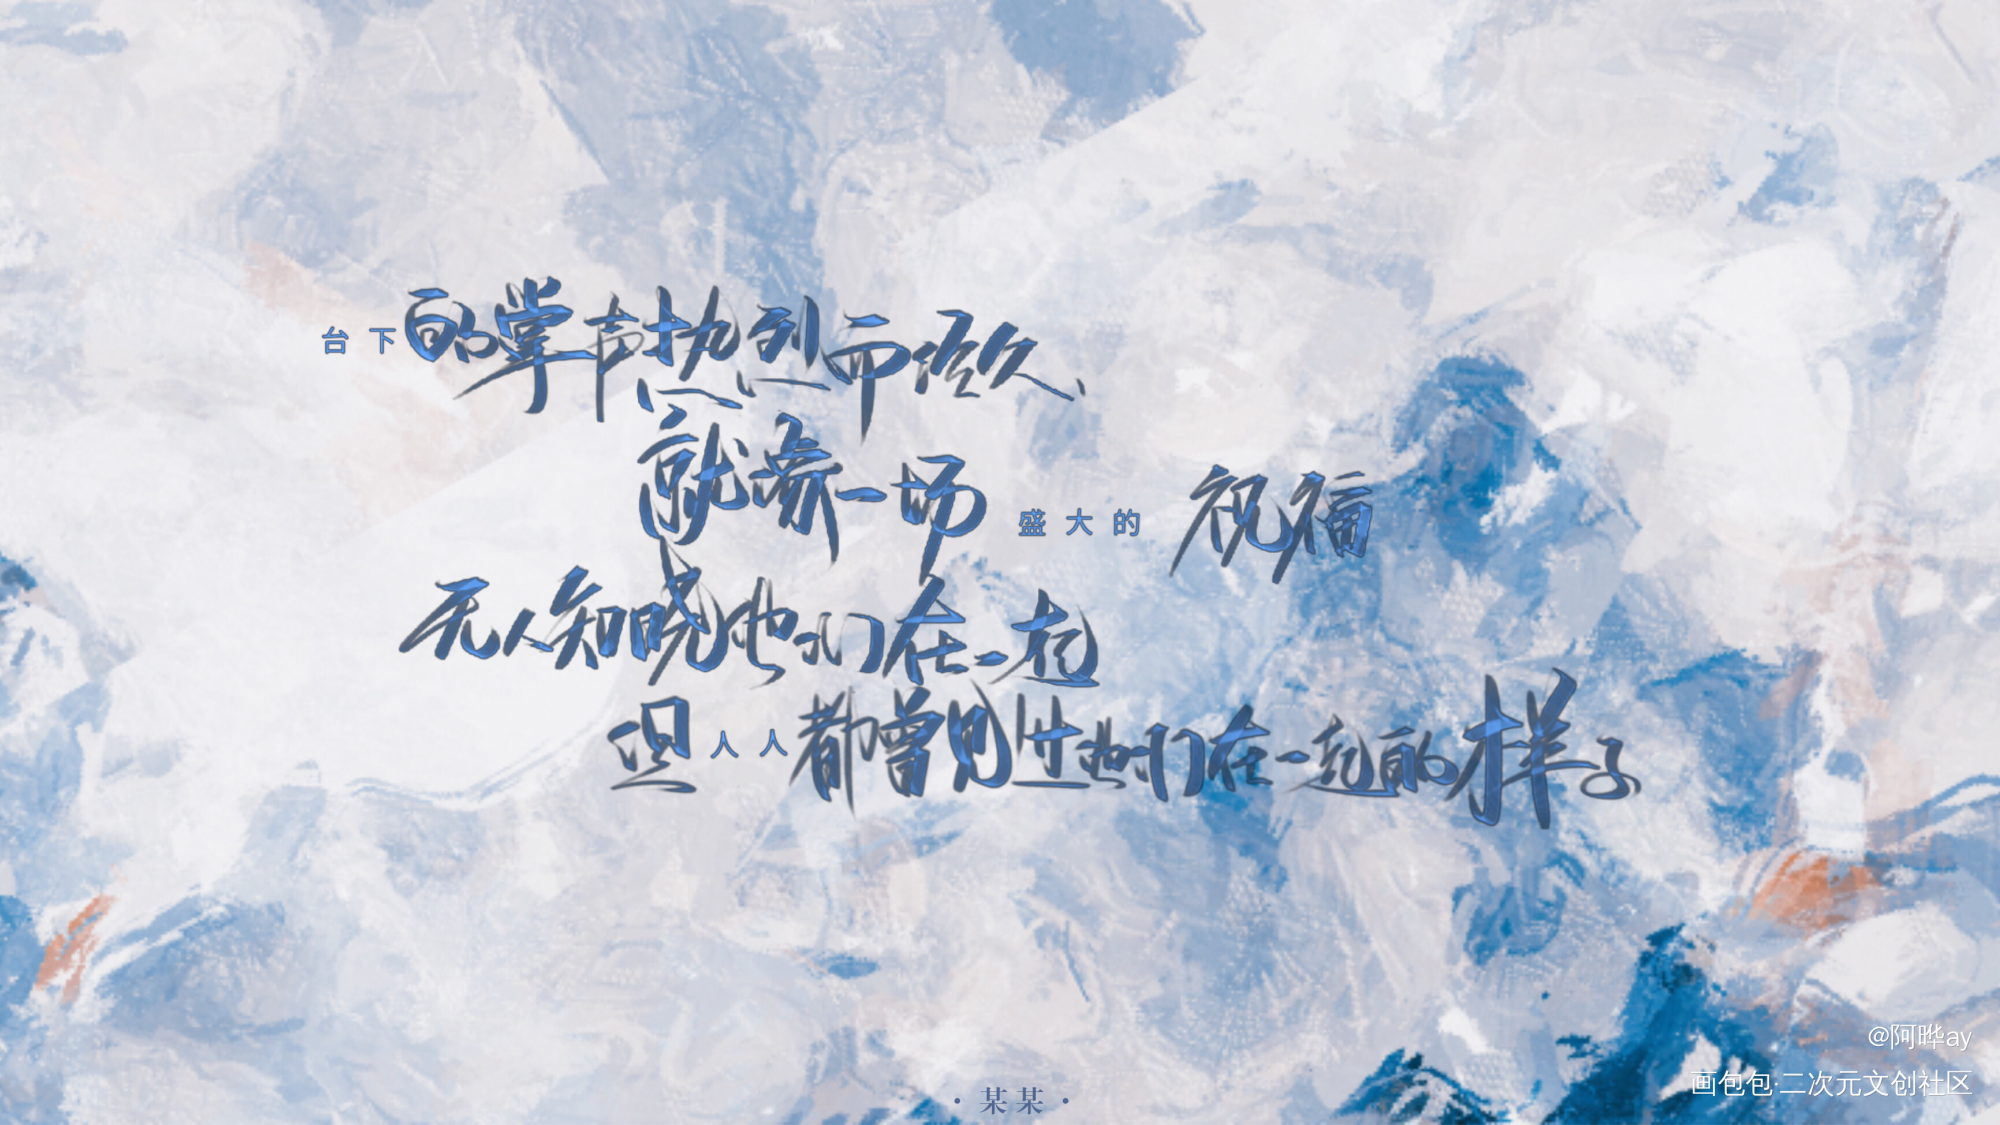 台下的掌声热烈而经久、
就像一场盛大的祝福
无人知晓他们在一起
但人人都曾见过他们在一起的样子
·某某·
@阿晔ay
画包包·二次元文创社区